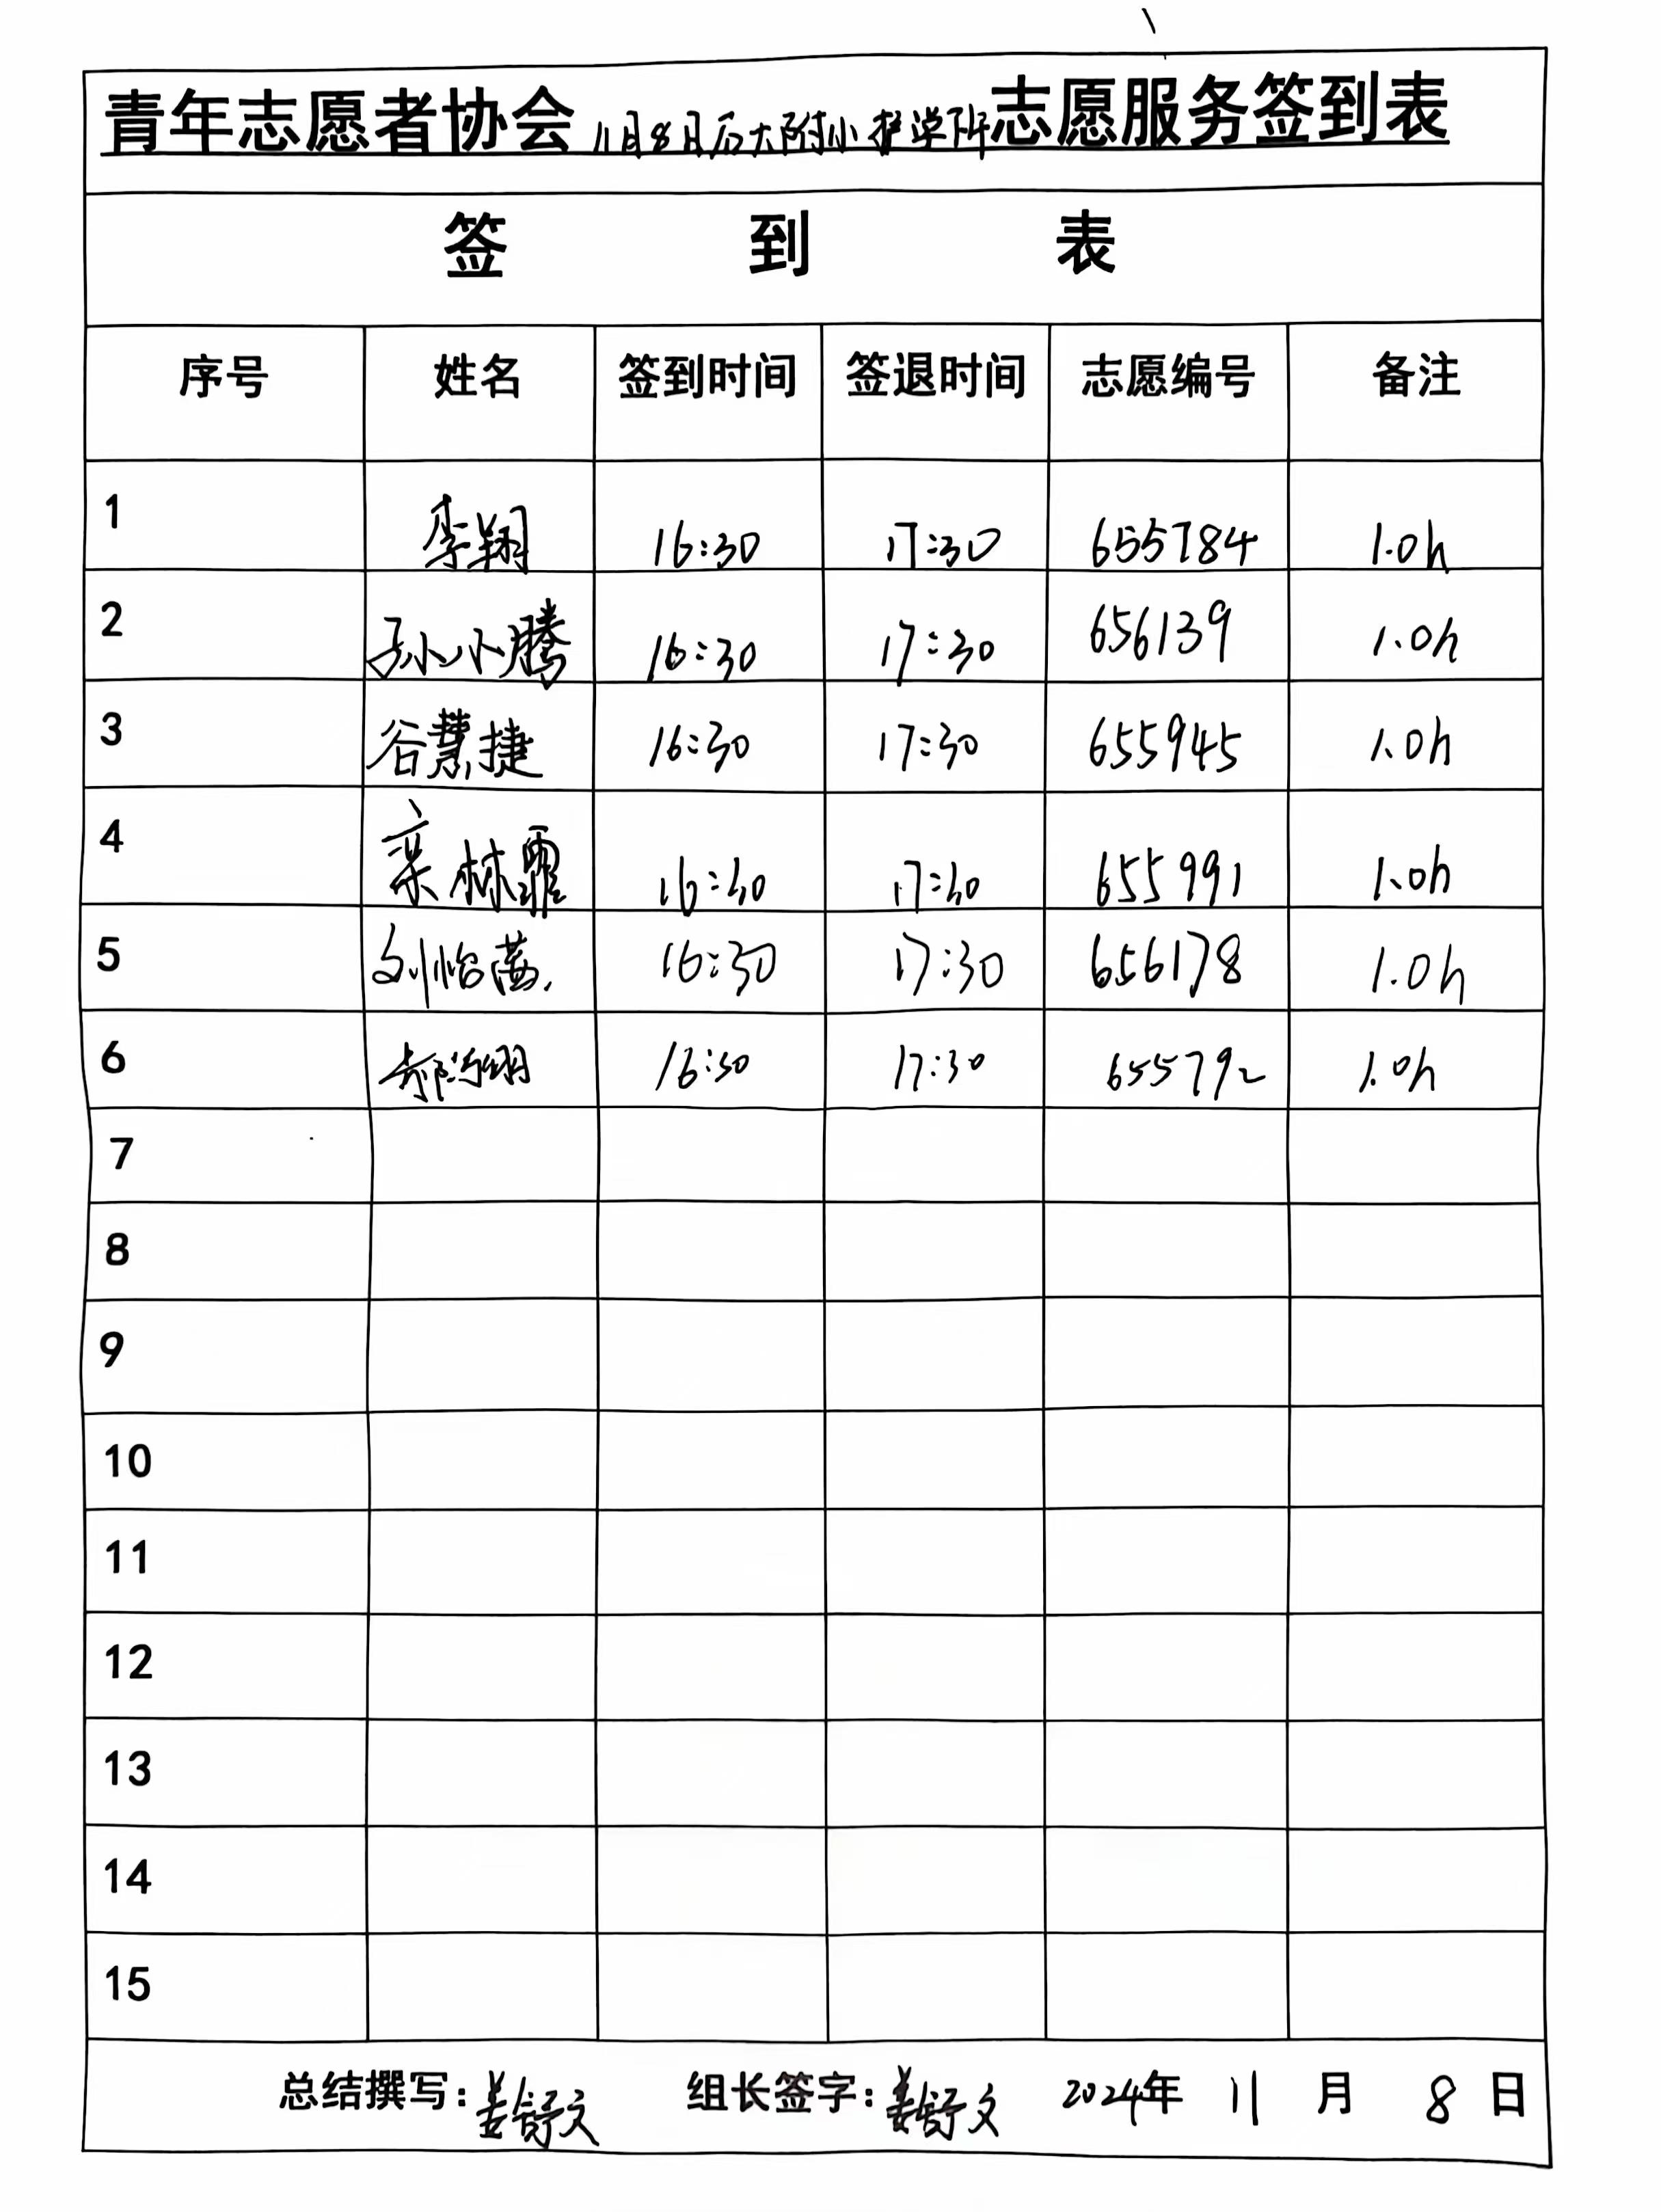 青年志愿者协会11月8日石大附小护学班志愿服务签到表
签 到 表
序号 姓名 签到时间 签退时间 志愿编号 备注
1 李翔 16:30 17:30 655784 1.0h
2 孙小腾 16:30 17:30 656139 1.0h
3 谷慧捷 16:30 17:30 655945 1.0h
4 栾林霏 16:30 17:30 655991 1.0h
5 刘怡 16:30 17:30 656178 1.0h
6 16:30 17:30 655792 1.0h
7
8
9
10
11
12
13
14
15
总结撰写:姜舒文 组长签字:姜舒文 2024年 11 月 8 日